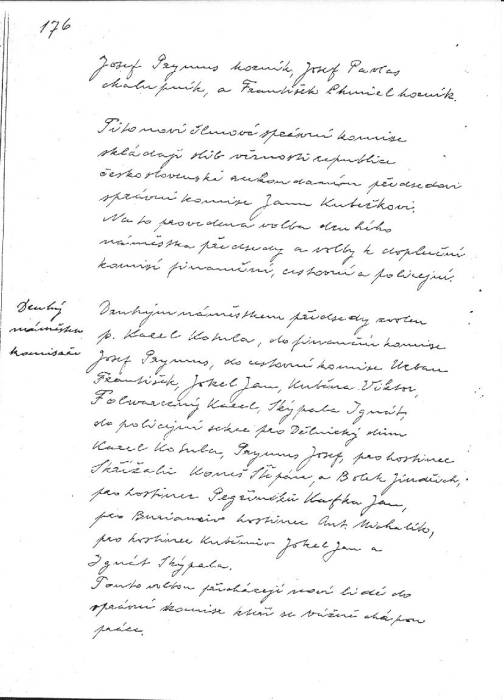 176
Josef Prymus horník, Josef Pavlas
chalupník, a František Chmiel horník.
Tito noví členové správní komise
skládají slib věrnosti republice
československé rukou dáním předsedovi
správní komise Janu Kubečkovi.
Na to provedena volba druhého
náměstka předsedy a volby k doplnění
komisí finanční, cestovní a policejní.
Druhý
náměstek
komisaře
Druhým náměstkem předsedy zvolen
p. Karel Kotula, do finanční komise
Josef Prymus, do cestovní komise Urban
František, Jokel Jan, Kubána Viktor,
Folwarczný Karel, Skýpala Ignát,
do policejní sekce pro Dělnický dům
Karel Kotula, Prymus Josef, pro hostinec
Skřížalů Koneš Štěpán, a Bolek Jindřich,
pro hostinec Kafka Jan,
pro hostinec Ant. Michalík,
pro hostinec Jokel Jan a
Ignát Skýpala.
Touto volbou přicházejí noví lidé do
správní komise kteří se vážně chápou
práce.